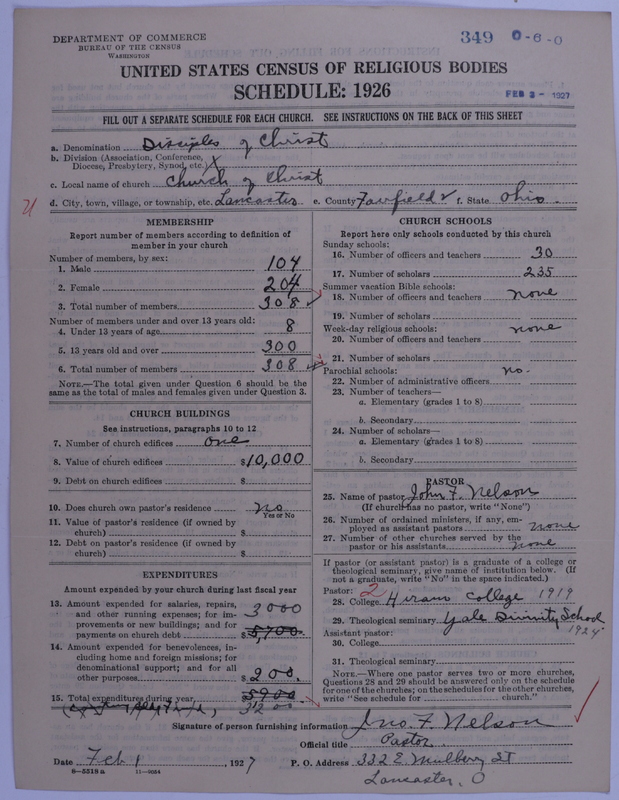 DEPARTMENT OF COMMERCE
BUREAU OF THE CENSUS
WASHINGTON
349 0-6-0
UNITED STATES CENSUS OF RELIGIOUS BODIES
SCHEDULE: 1926
FEB 3 - 1927
FILL OUT A SEPARATE SCHEDULE FOR EACH CHURCH. SEE INSTRUCTIONS ON THE BACK OF THIS SHEET
a. Denomination Disciples of Christ
b. Division (Association, Conference, Diocese, Presbytery, Synod, etc.) X
c. Local name of church Church of Christ
d. City, town, village, or township, etc. Lancaster e. County Fairfield f. State Ohio
MEMBERSHIP
Report number of members according to definition of
member in your church
Number of members, by sex:
1. Male 104
2. Female 204
3. Total number of members 308
Number of members under and over 13 years old:
4. Under 13 years of age 8
5. 13 years old and over 300
6. Total number of members 308
NOTE.—The total given under Question 6 should be the
same as the total of males and females given under Question 3.
CHURCH BUILDINGS
See instructions, paragraphs 10 to 12
7. Number of church edifices one
8. Value of church edifices $10,000
9. Debt on church edifices $
10. Does church own pastor's residence No
Yes or No
11. Value of pastor's residence (if owned by
church) $
12. Debt on pastor's residence (if owned by
church) $
EXPENDITURES
Amount expended by your church during last fiscal year
13. Amount expended for salaries, repairs,
and other running expenses; for im- 3000
provements or new buildings; and for
payments on church debt $5,700.
14. Amount expended for benevolences, in-
cluding home and foreign missions; for
denominational support; and for all
other purposes $200.
15. Total expenditures during year 5900
3200
CHURCH SCHOOLS
Report here only schools conducted by this church
Sunday schools:
16. Number of officers and teachers 30
17. Number of scholars 235
Summer vacation Bible schools:
18. Number of officers and teachers none
19. Number of scholars
Week-day religious schools: none
20. Number of officers and teachers
21. Number of scholars
Parochial schools: no.
22. Number of administrative officers
23. Number of teachers—
a. Elementary (grades 1 to 8)
b. Secondary
24. Number of scholars—
a. Elementary (grades 1 to 8)
b. Secondary
PASTOR
25. Name of pastor John F. Nelson
(If church has no pastor, write "None")
26. Number of ordained ministers, if any, em-
ployed as assistant pastors none
27. Number of other churches served by the
pastor or his assistants none
If pastor (or assistant pastor) is a graduate of a college or
theological seminary, give name of institution below. (If
not a graduate, write "No" in the space indicated.)
Pastor: 2
28. College Hiram College 1919
29. Theological seminary Yale Divinity School
1924
Assistant pastor:
30. College
31. Theological seminary
NOTE.—Where one pastor serves two or more churches,
Questions 28 and 29 should be answered only on the schedule
for one of the churches; on the schedules for the other churches,
write "See schedule for church."
Signature of person furnishing information Jno F. Nelson
Official title Pastor
Date Feb 1, 1927 P. O. Address 332 E Mulberry St
8-5518 a 11-9054
Lancaster, O